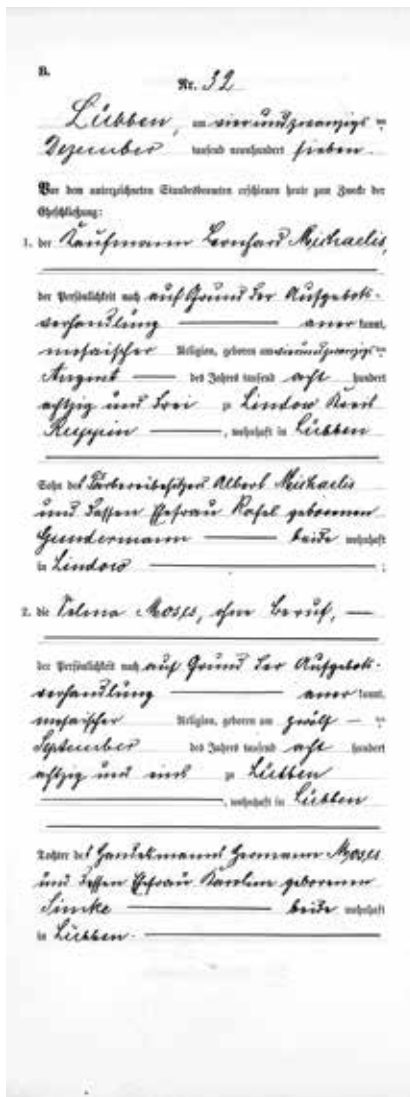 B.
Nr. 32
Lübben, am vierundzwanzigs ten
Dezember tausend neunhundert sieben.
Vor dem unterzeichneten Standesbeamten erschienen heute zum Zwecke der
Eheschließung:
1. der Kaufmann Leonhard Michaelis,
der Persönlichkeit nach auf Grund der Aufgebots-
verhandlung aner kannt,
mosaischer Religion, geboren am vierundzwanzigs ten
August des Jahres tausend acht hundert
achtzig und drei zu Lindow Kreis
Ruppin, wohnhaft in Lübben
Sohn des Färbereibesitzers Albert Michaelis
und dessen Ehefrau Rosel geborenen
Gundermann beide wohnhaft
in Lindow;
2. die Selma Moses, ohne Beruf,
der Persönlichkeit nach auf Grund der Aufgebots-
verhandlung aner kannt,
mosaischer Religion, geboren am zwölf ten
September des Jahres tausend acht hundert
achtzig und eins zu Lübben
, wohnhaft in Lübben
Tochter des Handelsmanns Hermann Moses
und dessen Ehefrau Karoline geborenen
Simke beide wohnhaft
in Lübben.